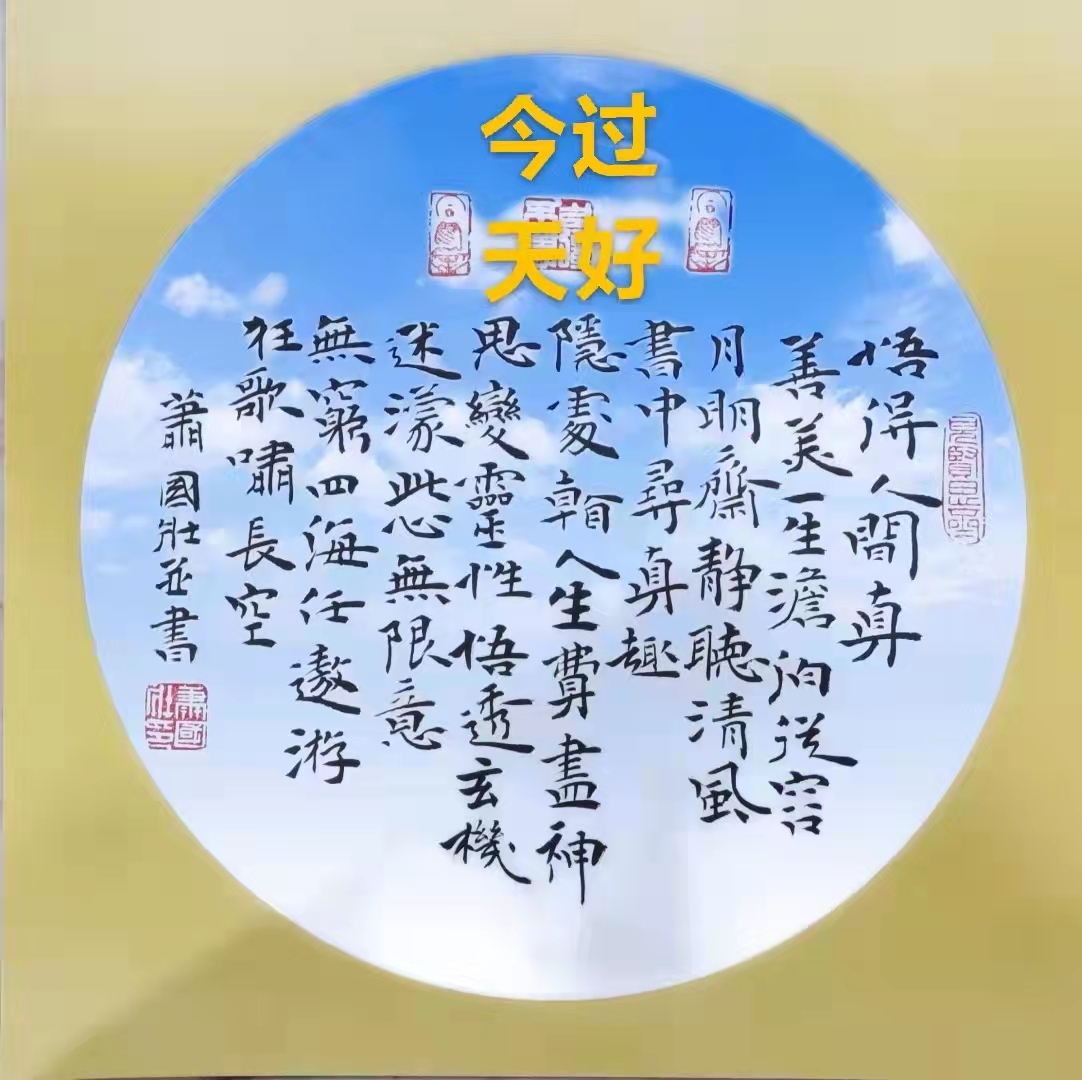 今过
天好
見賢思齊
悟得人間真
善美一生澹泊從容
月明齋静聽清風
書中尋真趣
隱處翰人生費盡神
思變靈性悟透玄機
迷濛此心無限意
無窮四海任遨游
狂歌嘯長空
蕭國壯並書
蕭國壯印